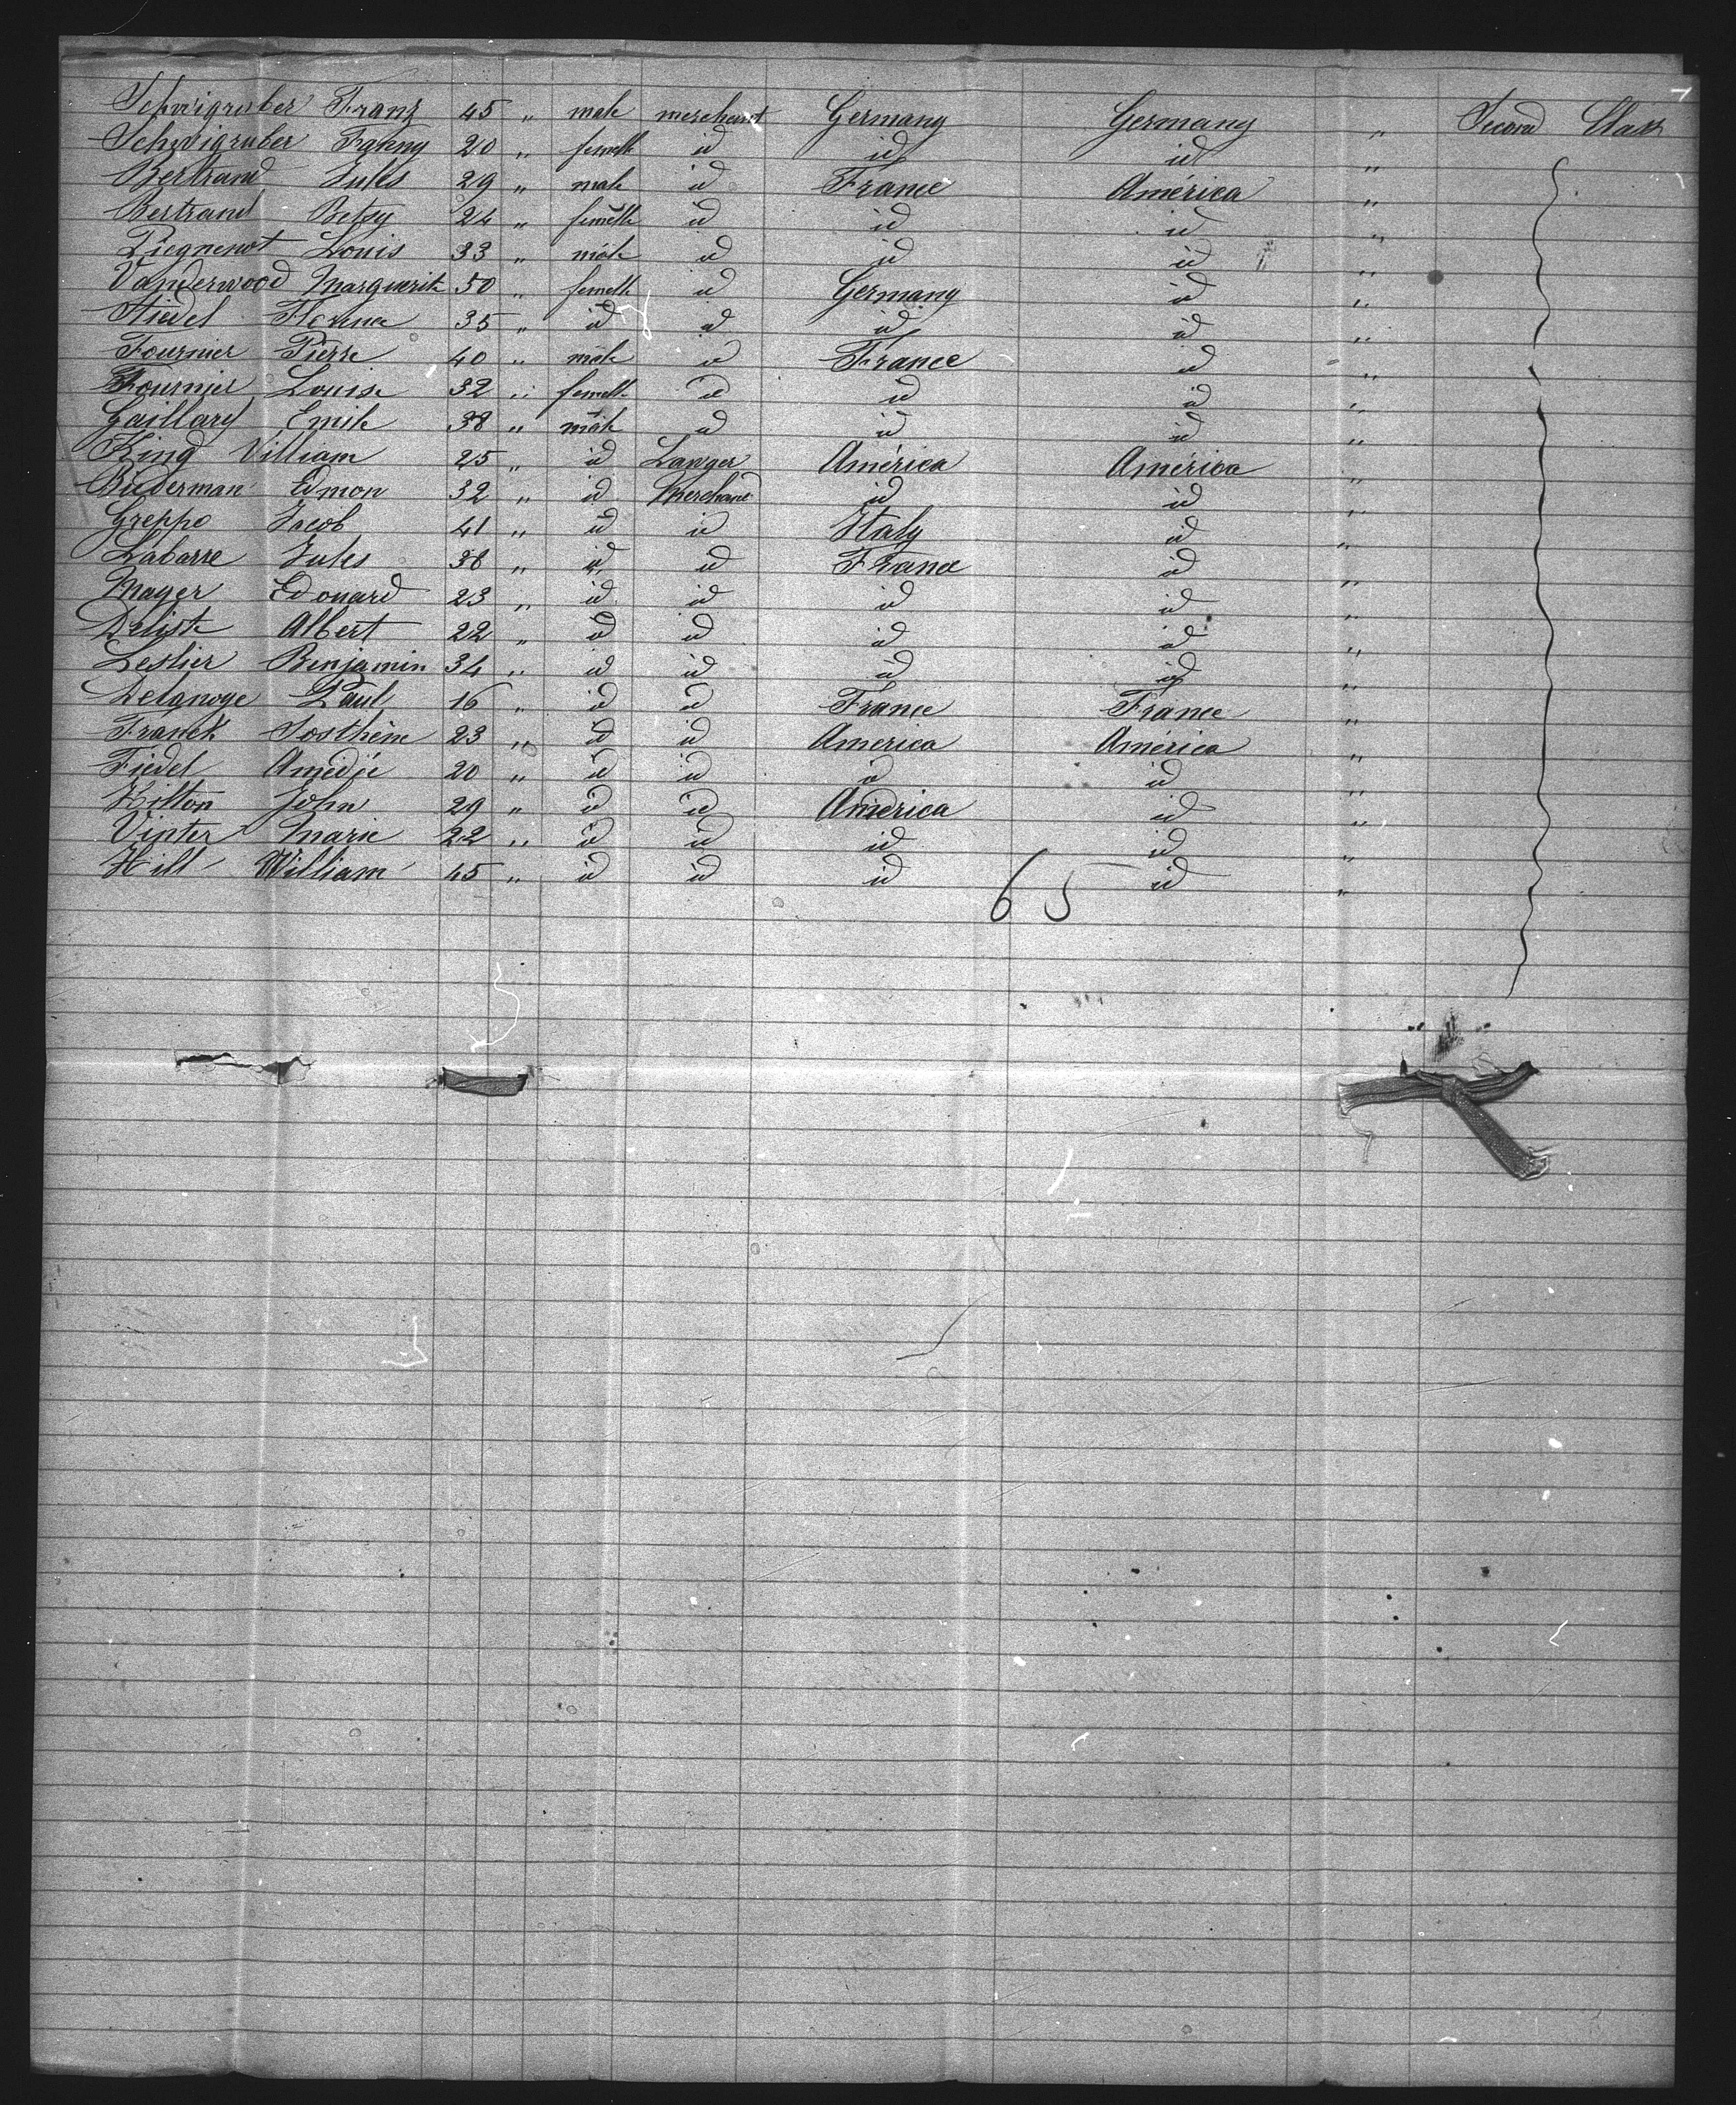 Schweigruber Franz 45 " male merchant Germany Germany " Second Class
Schweigruber Fanny 20 " femelle id id id "
Bertrand Jules 29 " male id France América "
Bertrand Betsy 24 " femelle id id id "
Louis 33 " male id id id "
Vanderwood Marguerite 50 " femelle id Germany id "
Hiedel 35 " id id id id "
Fournier Pierre 40 " male id France id "
Fournier Louise 32 " femelle id id id "
Gaillard Emile 38 " male id id id "
King William 25 " id Lawyer América América "
Biderman Edmon 32 " id Merchand id id "
Greppo Jacob 41 " id id Italy id "
Labarre Jules 38 " id id France id "
Mayer Edouard 23 " id id id id "
Delisle Albert 22 " id id id id "
Leslier Benjamin 34 " id id id id "
Delanoye Paul 16 " id id France France "
Franck Sosthène 23 " id id America América "
Fiedel Amédée 20 " id id id id "
Hilton John 29 " id id América id "
Vinter Marie 22 " id id id id "
Hill William 45 " id id id id "
65